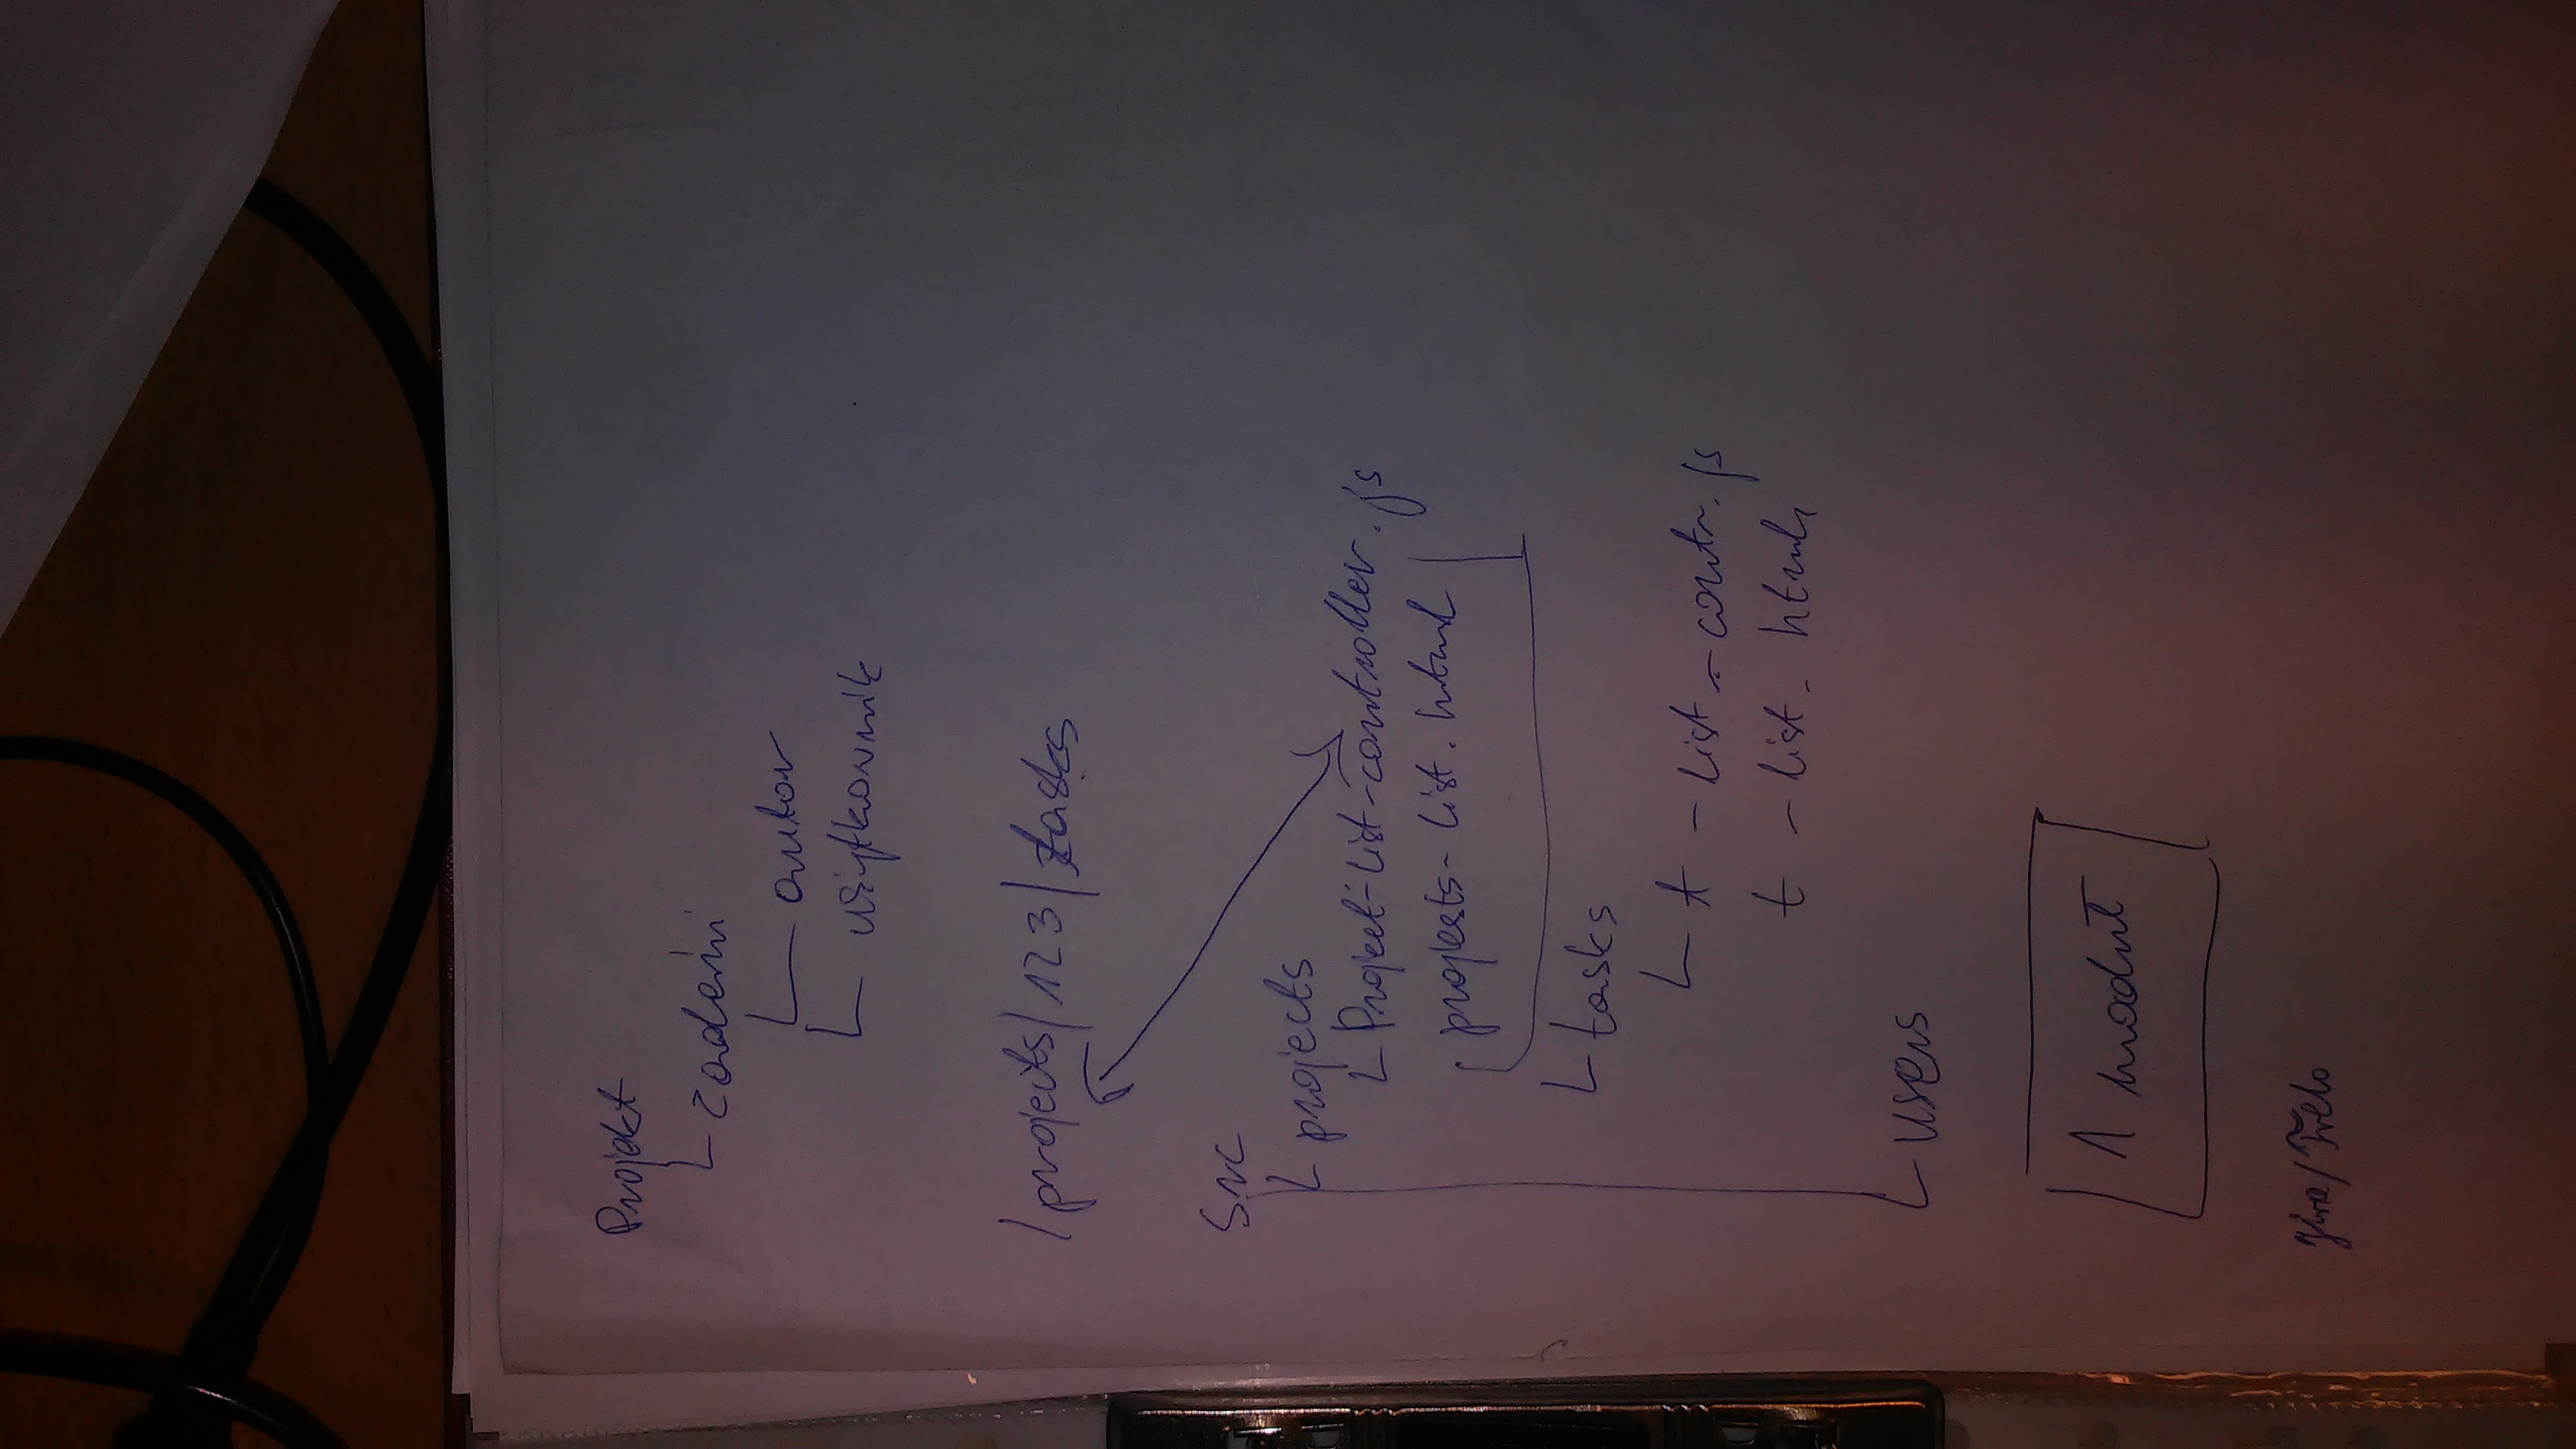 Projekt
zadani
autor
użytkownik
/projects/123/tasks
Src
projects
Project-list-controller.js
projects-list.html
tasks
t - list - contr. js
t - list. html
users
1 moduł
Jira/Trello